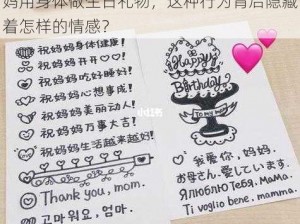 妈用身体做生日礼物，这种行为背后隐藏
着怎样的情感？
祝妈妈身体健康！
祝妈妈开开心心！
祝妈妈吃好睡好！
祝妈妈心想事成！
祝妈妈美丽动人！
祝妈妈万事大吉！
祝妈妈生活越来越好！
Thank you, mom.
고마워요, 엄마.
Happy
Birthday
To my mom
我爱你，妈妈.
お母さん，愛しています.
Я люблю Тебя, Мама.
Ti voglio bene, mamma.
小红书